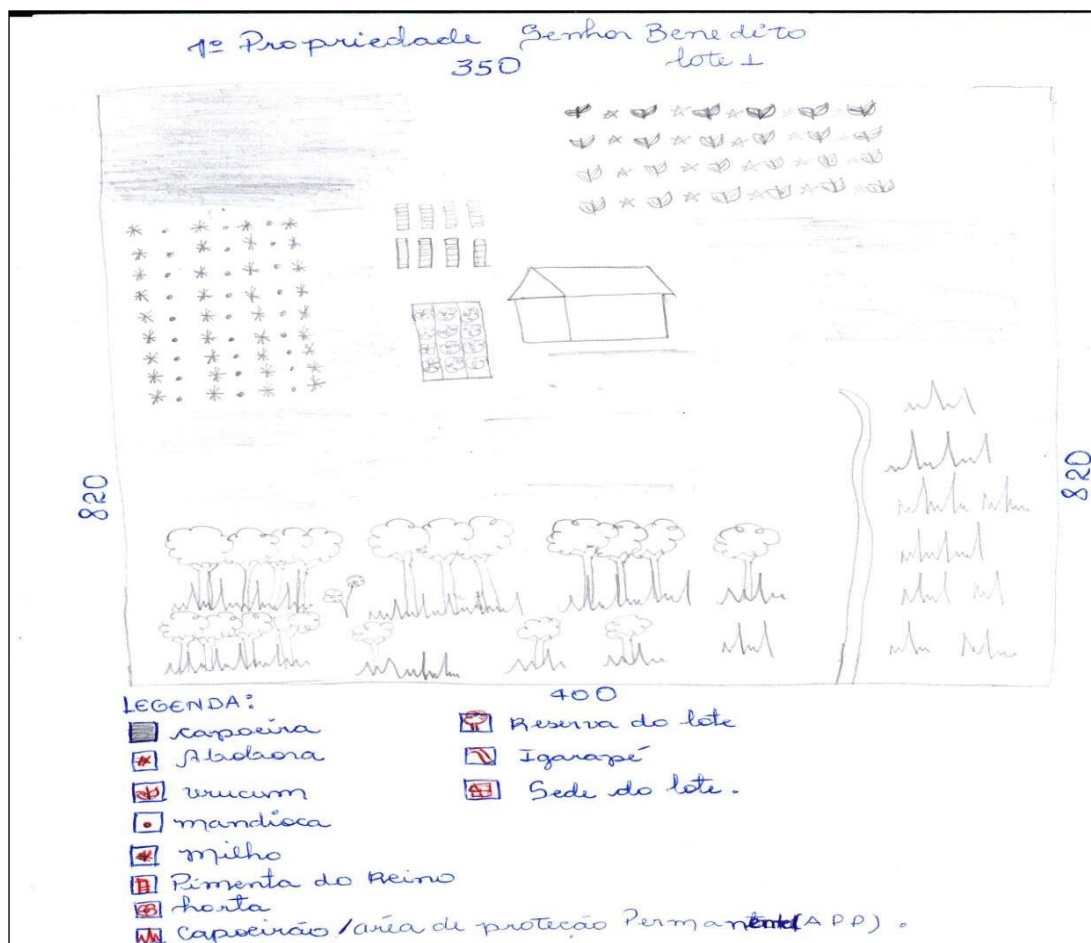 1º Propriedade Senhor Benedito
350 lote 1
820
820
400
LEGENDA:
capoeira
Abobora
urucum
mandioca
milho
Pimenta do Reino
horta
capoeirão/aréa de proteção Permanente (APP).
Reserva do lote
Igarapé
Sede do lote.